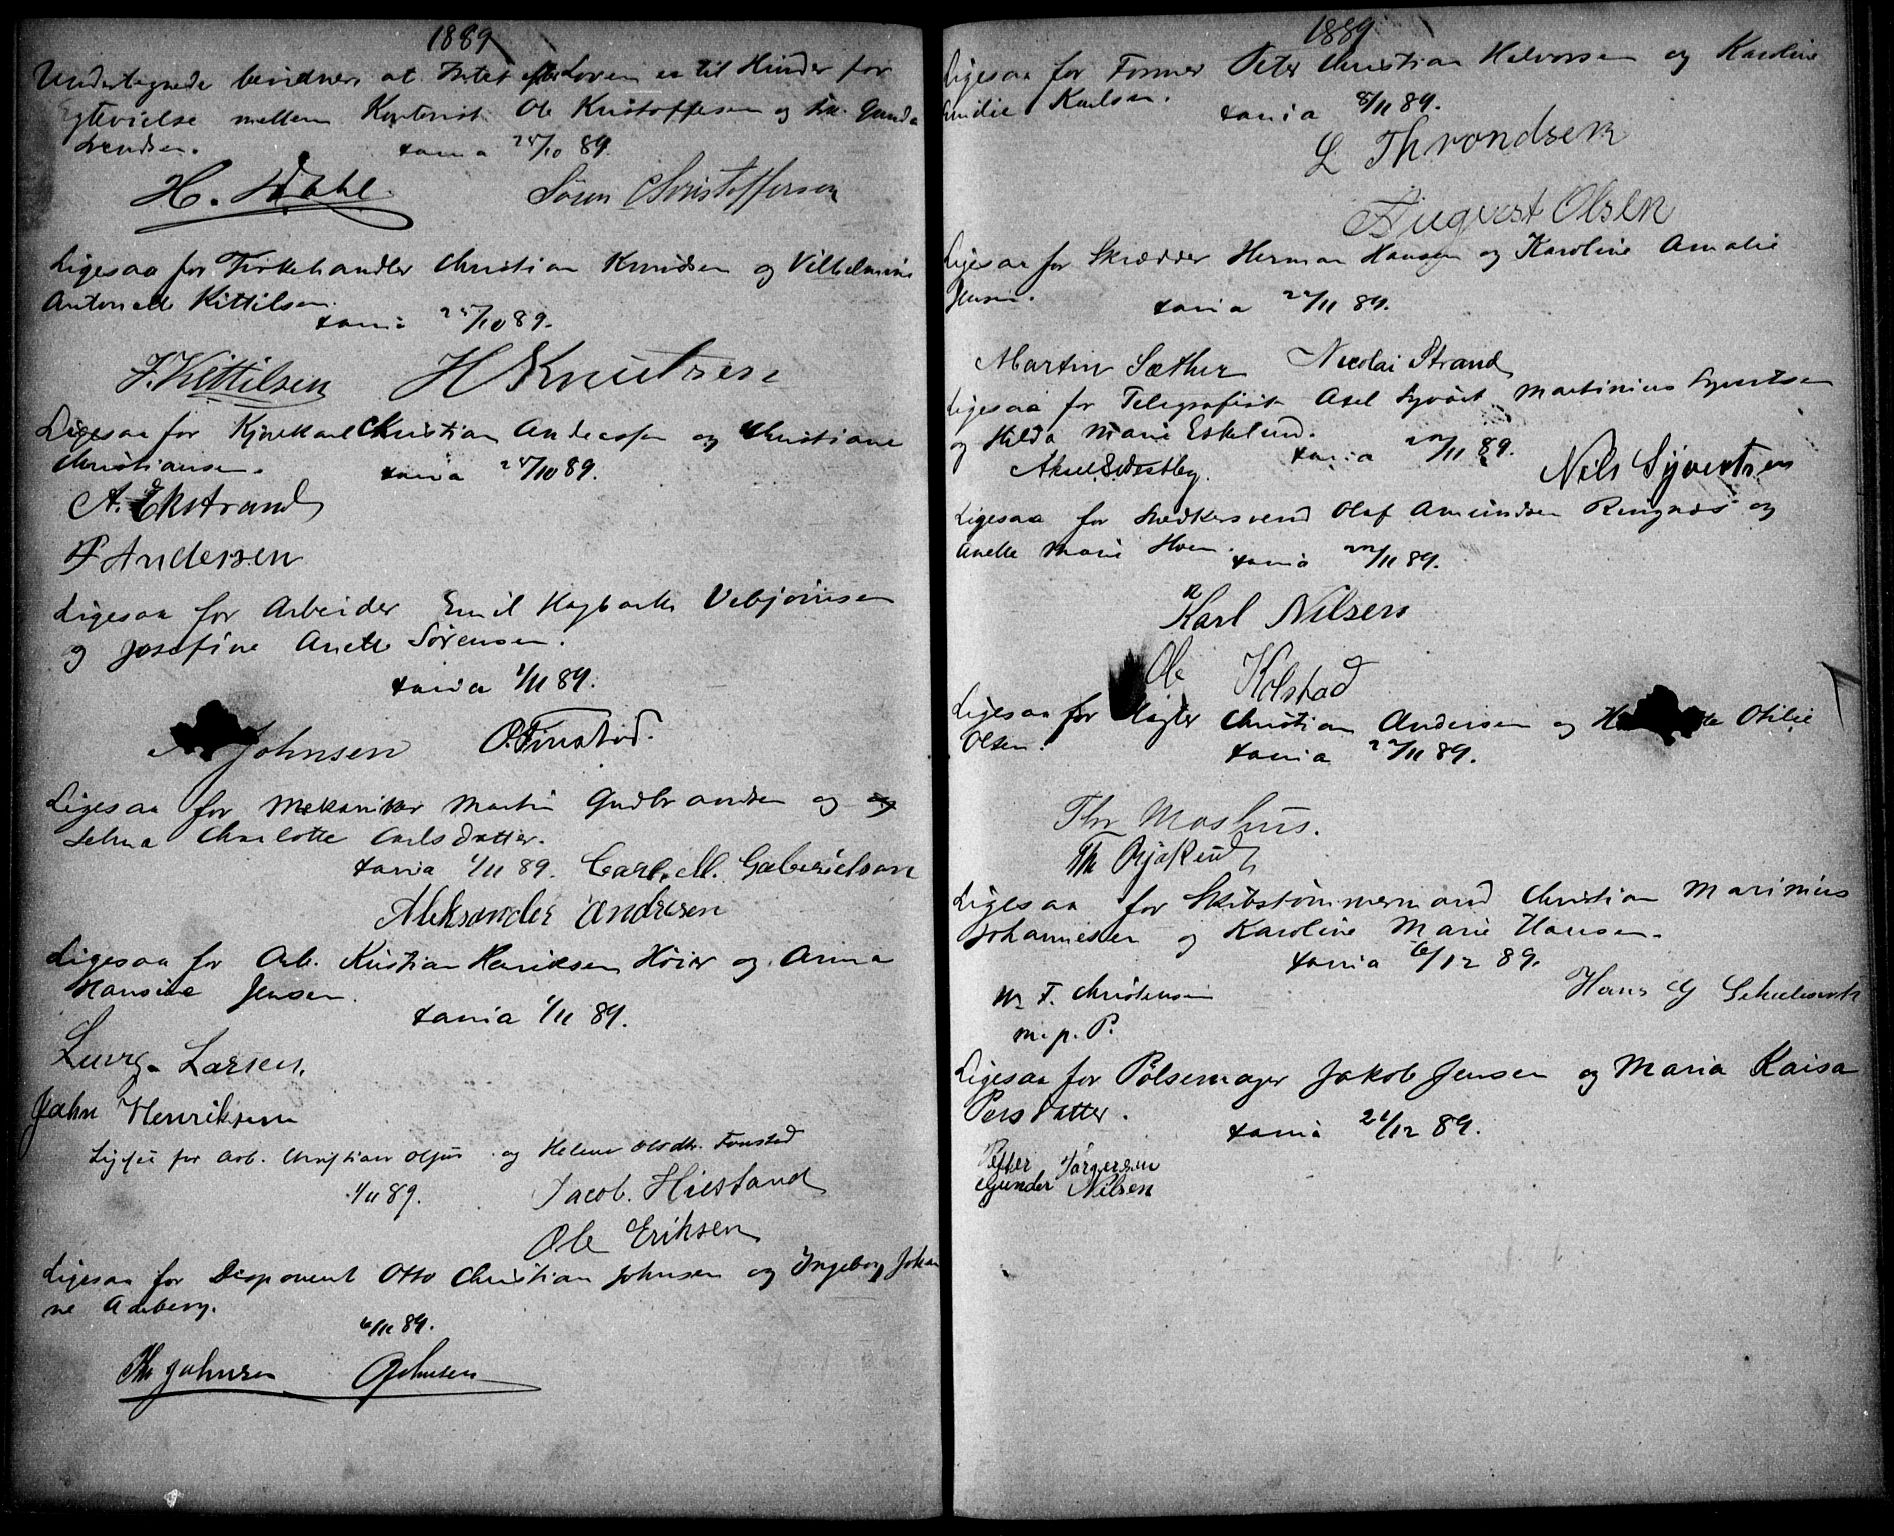 1889
Undertegnede bevidner at Intet efter Loven er til Hinder for
Egtevielse mellem Kontorist Ole Kristoffersen og Gunda
25/10 89.
H. Dahl. Sören Christoffersen
Ligesaa for Christian Knudsen og Vilhelmine
Kittilsen.
Xania 25/10 89.
J. Kittilsen H Knutsen
Ligesaa for Christian Anderssen og Christiane
Christiansen. Xania 25/10 89.
A. Ekstrand
P Andersen
Ligesaa for Arbeider Emil Hagbart Vebjörnsen
og Josefine Anette Sörensen.
Xania 1/11 89.
Johnsen O. Finstad.
Ligesaa for Mekaniker Martin Gudbrandsen og
Selma Charlotte Carlsdatter.
Xania 1/11 89. Carl. M. Gabrielsen
Aleksander Andresen
Ligesaa for Arb. Kristian Henriksen Höier og Anna
Hansine Jensen.
Xania 1/11 89.
Ludvg. Larsen.
John Henriksen
Ligesaa for Arb. Christian Olsen og Helene Olsdtr. Fonstad
1/11 89. Jacob. Hiestand
Ole Eriksen
Ligesaa for Disponent Otto Christian Johnsen og Ingeborg Johan
ne
6/11 89.
Th Johnsen O Johnsen
1889
Ligesaa for Former Peter Christian Halvorsen og Karoline
Emilie Karlsen.
Xania 8/11 89.
L Throndsen
Augvest Olsen
Ligesaa for Skrædder Herman Hansen og Karoline Amalie
Jensen.
Xania 22/11 89.
Martin Sæther Nicolai Strand
Ligesaa for Telegrafist Axel Syvert Martinius Syvertsen
og Hilda Marie Eskelund.
Xania 22/11 89.
Aksel S. Westby. Nils Syvertsen
Ligesaa for Snedkersvend Olaf Amundsen Ringnæs og
Anette Marie Hoen.
Xania 22/11 89.
Karl Nilsen
Ole Kolstad
Ligesaa for Christian Andersen og Otilie
Olsen.
Xania 22/11 89.
Thr Moshus.
Th
Ligesaa for Skibstömmermand Christian Marinius
Johannesen og Karoline Marie Hansen.
Xania 6/12 89.
W. F. Christensen Hans
m. p. P.
Ligesaa for Pölsemager Jakob Jensen og Maria Kaisa
Persdatter.
Xania 21/12 89.
Petter Jörgensen
Gunder Nilsen